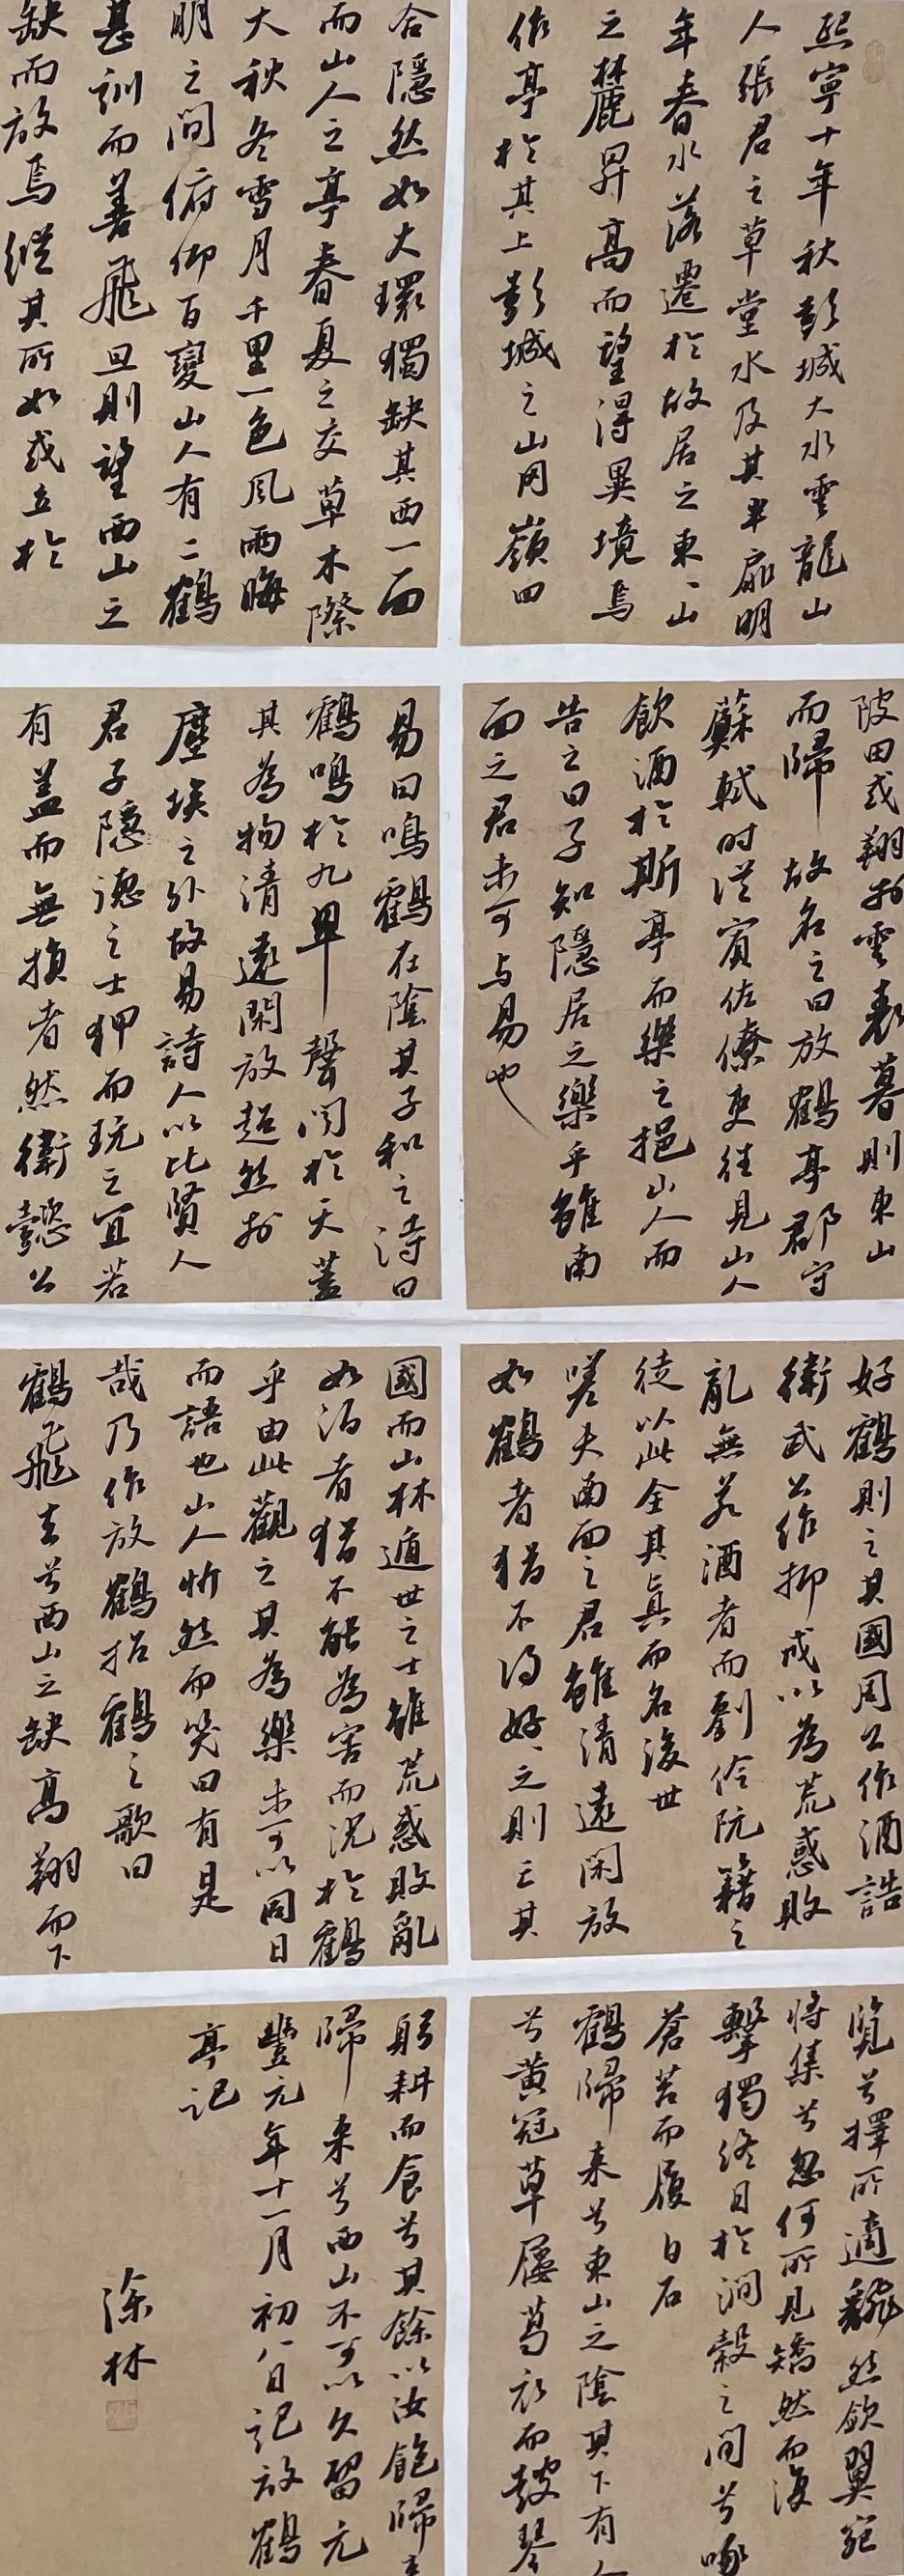 熙寧十年秋彭城大水雲龍山
人張君之草堂水及其半扉明
年春水落遷於故居之東、山
之麓昇高而望得異境焉
作亭於其上彭城之山岡嶺四
合隱然如大環獨缺其西一面
而山人之亭春夏之交草木際
大秋冬雪月千里一色風雨晦
明之間俯仰百變山人有二鶴
甚訓而善飛旦則望西山之
缺而放焉縱其所如或立於
陂田或翔於雲表暮則東山
而歸故名之曰放鶴亭郡守
蘇軾時從賓佐僚吏往見山人
飲酒於斯亭而樂之挹山人而
告之曰子知隱居之樂乎雖南
面之君未可与易也
易曰鳴鶴在陰其子和之詩曰
鶴鳴於九皋聲聞於天蓋
其為物清遠閑放超然於
塵埃之外故易詩人以比賢人
君子隱德之士狎而玩之宜若
有益而無損者然衛懿公
好鶴則亡其國周公作酒誥
衛武公作抑戒以為荒惑敗
亂無若酒者而劉伶阮籍之
徒以此全其真而名後世
嗟夫南面之君雖清遠閑放
如鶴者猶不得好、之則亡其
國而山林遁世之士雖荒惑敗亂
如酒者猶不能為害而況於鶴
乎由此觀之其為樂未可以同日
而語也山人忻然而笑曰有是
哉乃作放鶴招鶴之歌曰
鶴飛去兮西山之缺高翔而下
覽兮擇所適翻然欲翼宛
將集兮忽何所見矯然而復
擊獨終日於澗谷之間兮啄
蒼苔而履白石
鶴歸來兮東山之陰其下有人
兮黃冠草屨葛衣而鼓琴
躬耕而食兮其餘以汝飽歸
歸來兮西山不可以久留元
豐元年十一月初八日記放鶴
亭記
涂林